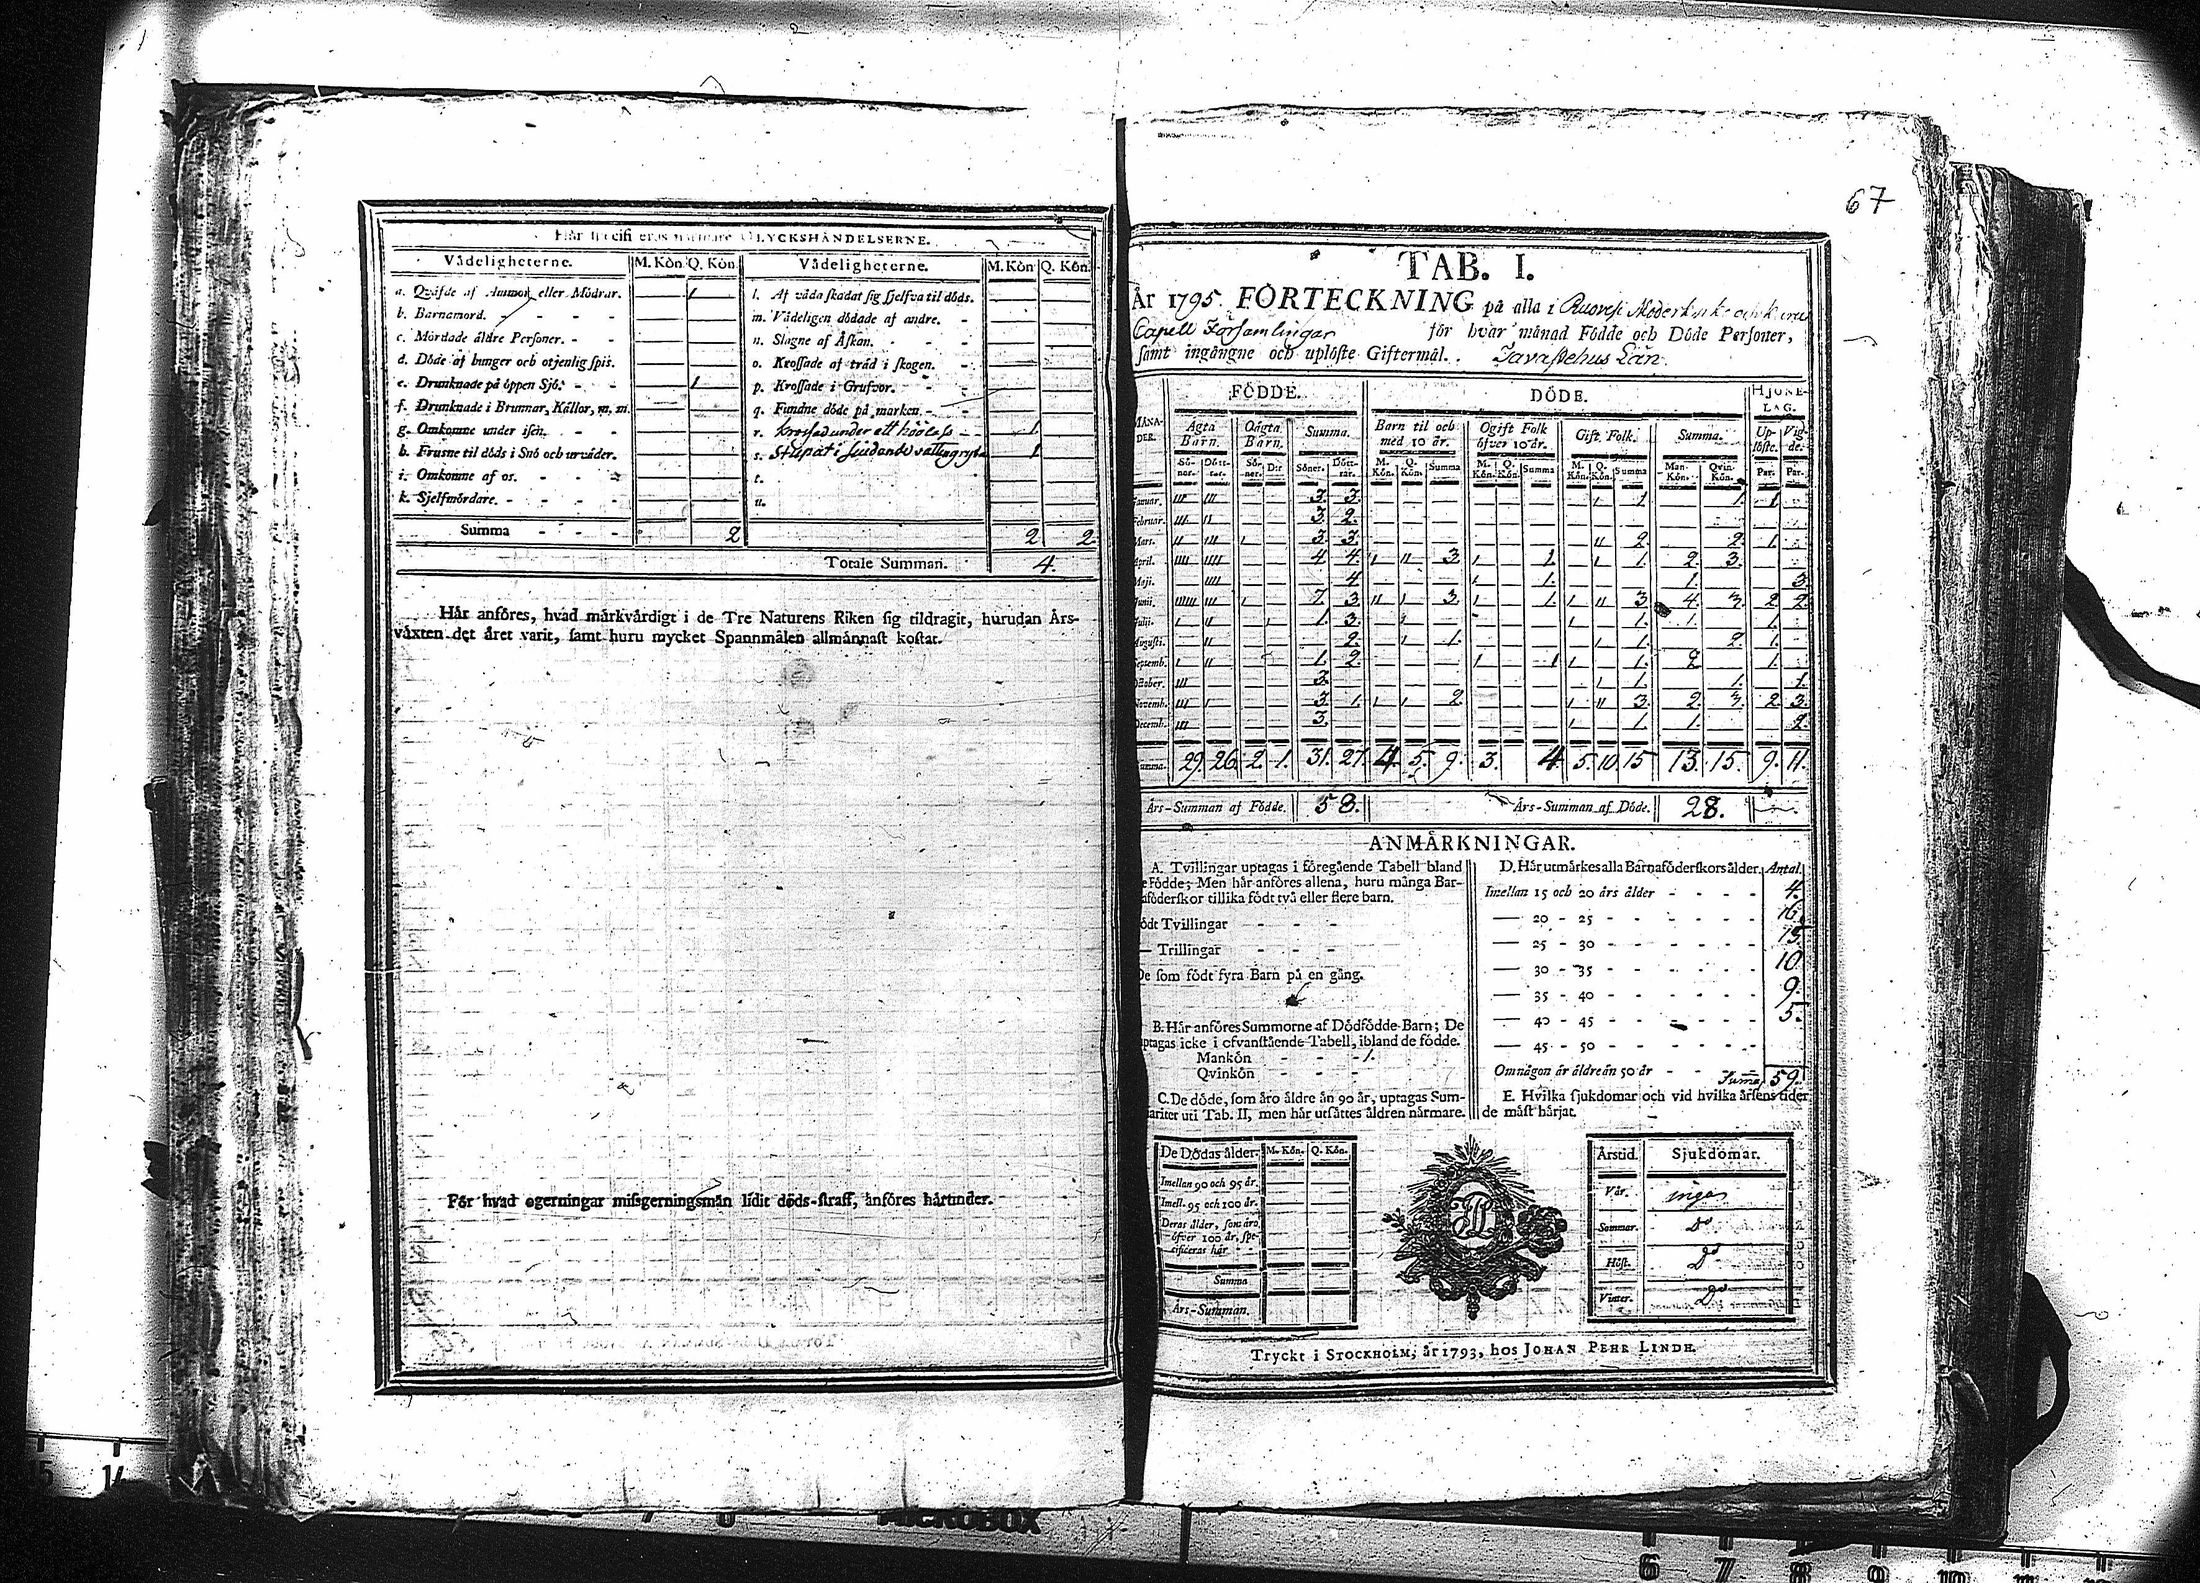 67
GLYCKSHÄNDELSERNE.
Vådeligheterne. M. Kön. Q. Kön. Vådeligheterne. M. Kön Q. Kön.
a. Qväfde af Ammor eller Mödrar. 1 l. Af våda skadat sig sjelfva til döds.
b. Barnamord. - - - - m. Vådeligen dödade af andre. -
c. Mördade äldre Personer. - - n. Slagne af Åskan. - - -
d. Döde af hunger och otjenlig spis. o. Krossade af träd i skogen. -
e. Drunknade på öppen Sjö. - - 1 p. Krossade i Grufvor. - -
f. Drunknade i Brunnar, Källor, m. m. q. Fundne döde på marken. - -
g. Omkomne under isen. - - r. krossad under ett höölass 1.
h. Frusne til döds i Snö och urväder. s. Stupat i siudande vattugryta 1.
i. Omkomne af os. - - - t.
k. Sjelfmördare. - - - - u.
Summa - - - - 2 2 2
Totale Summan. 4.
Här anföres, hvad märkvärdigt i de Tre Naturens Riken sig tildragit, hurudan Års-
växten det året varit, samt huru mycket Spannmålen allmännast kostat.
För hvad ogerningar missgerningsmän lidit döds-straff, anföres härunder.
TAB. I.
År 1795. FÖRTECKNING på alla i Ruovesi Moderkyrko och
Capell Församlingar för hvar månad Födde och Döde Personer,
samt ingångne och uplöste Giftermål. Tavastehus Län.
FÖDDE. DÖDE. HJONE-
LAG.
MÅNA-
DER. Ägta Barn. Oägta Barn. Summa. Barn til och med 10 år. Ogift Folk öfver 10 år. Gift Folk. Summa. Up-löste. Vig-de.
Sö-ner. Dött-rar. Sö-ner. D:r Söner. Dött-rar. M. Kön. Q. Kön. Summa M. Kön. Q. Kön. Summa M. Kön. Q. Kön. Summa Man-Kön. Qvin-Kön. Par. Par.
Januar. ııı ııı 3. 3. ı 1 1. 1
Februar. ııı ıı 3. 2.
Mars. ıı ııı ı 3. 3. ıı 2. 2. 1.
April. ıııı ıııı 4 4. ı ıı 3. ı 1. ı 1. 2. 3.
Maji. ıııı 4 ı 1. 1. 3.
Junii. ııııııı ııı 7. 3. ıı ı 3. ı 1. ı ıı 3. 4. 3. 2. 2.
Julii. 1. 3. 1. 1. 1.
Augusti. ıı 2. ı 1. ı 1. 2. 1.
Septemb. ı ıı 1. 2. ı 1 ı 1. 2 1.
October. ııı 3. ı 1. 1. 1.
Novemb. ııı ı 3. 1. ı ı 2. ı ıı 3. 2. 3. 2. 3.
Decemb. ııı 3. ı 1. 1. 2.
Summa. 29. 26. 2. 1. 31. 27. 4. 5. 9. 3. 4. 5. 10. 15 13. 15. 9. 11.
Års-Summan af Födde. 58. Års-Summan af Döde. 28.
ANMÄRKNINGAR.
A. Tvillingar uptagas i föregående Tabell bland
Födde; Men här anföres allena, huru många Bar-
aföderskor tillika födt två eller flere barn.
födt Tvillingar - - -
— Trillingar - - -
De som födt fyra Barn på en gång.
B. Här anföres Summorne af Dödfödde Barn; De
uptagas icke i ofvanstående Tabell, ibland de födde.
Mankön - - - 1.
Qvinkön - - -
C. De döde, som äro äldre än 90 år, uptagas Sum-
mariter uti Tab. II, men här utsättes åldren närmare.
De Dödas ålder. M. Kön. Q. Kön.
Imellan 90 och 95 år.
Imell. 95 och 100 år.
Deras ålder, som äro
öfver 100 år, spe-
cificeras här - -
Summa
Års-Summan.
D. Här utmärkes alla Barnaföderskors ålder. Antal.
Imellan 15 och 20 års ålder - - - - 4.
— 20 - 25 - - - - - - 16.
— 25 - 30 - - - - - - 15.
— 30 - 35 - - - - - - 10
— 35 - 40 - - - - - - 9.
— 40 - 45 - - - - - - 5.
— 45 - 50 - - - - - -
Om någon är äldre än 50 år - - -
Suma 59.
E. Hvilka sjukdomar och vid hvilka årsens tider
de mäst härjat.
Årstid. Sjukdomar.
Vår. inga
Sommar. Do
Höst. Do
Vinter. Do
Tryckt i STOCKHOLM, år 1793, hos JOHAN PEHR LINDH.
MICROBOX